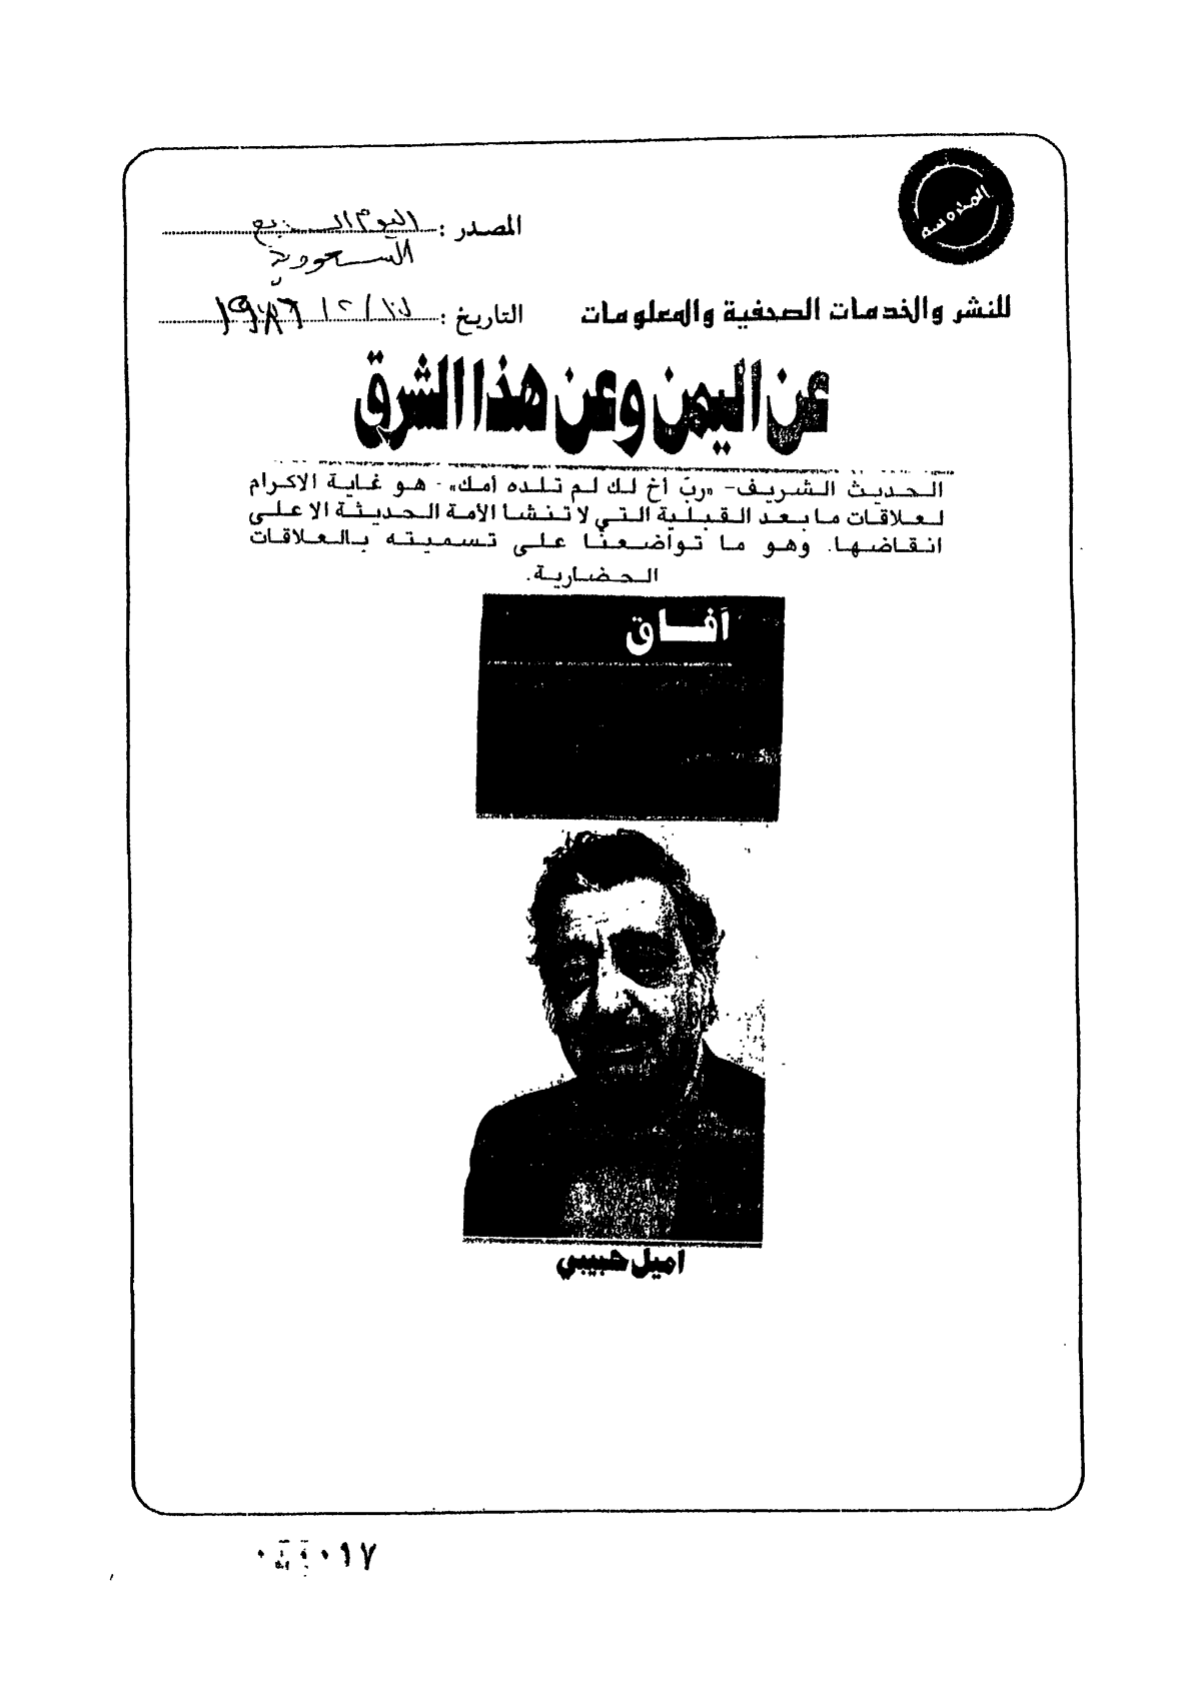 المحروسة
المصدر : اليوم السابع
السعودية
للنشر والخدمات الصحفية والمعلومات
التاريخ : ١٩٨٦
عن اليمن وعن هذا الشرق
الحديث الشريف- «ربّ أخ لك لم تلده أمك» - هو غاية الاكرام
لعلاقات ما بعد القبلية التي لا تنشا الأمة الحديثة الا على
انقاضها. وهو ما تواضعنا على تسميته بالعلاقات
الحضارية.
آفاق
اميل حبيبي